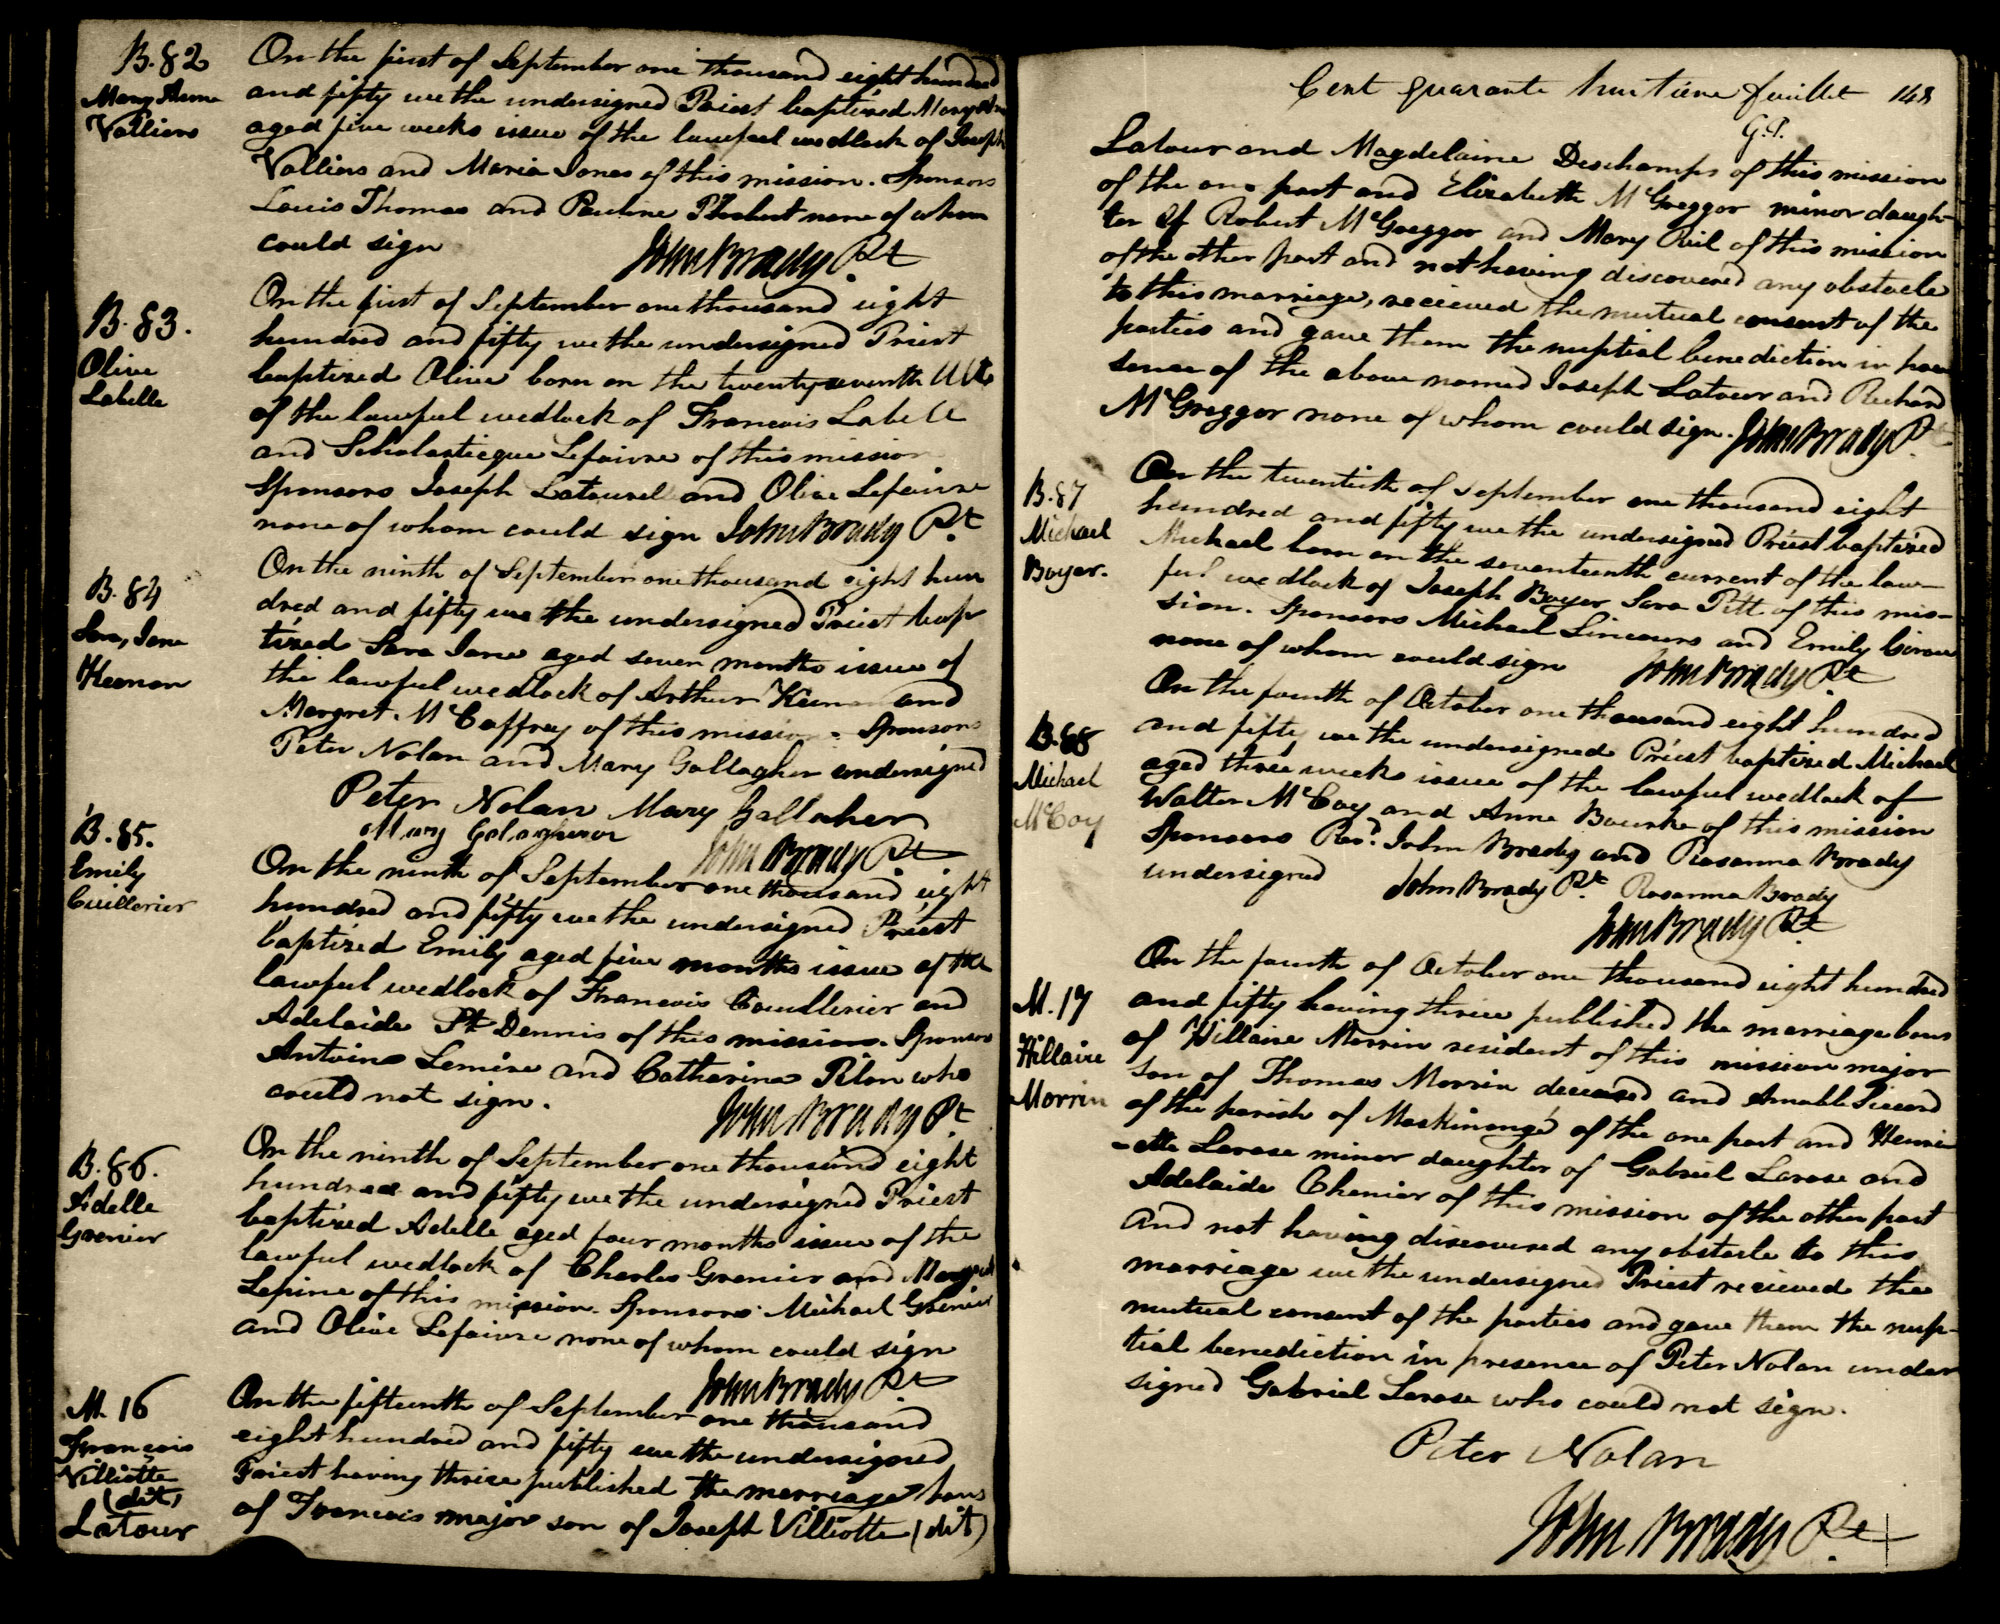 B.82
Mary Anne
Valliers
On the first of September one thousand eight hundred
and fifty we the undersigned Priest baptized Mary Ann
aged five weeks issue of the lawful wedlock of Joseph
Valliers and Maria Jones of this mission. Sponsors
Louis Thomas and Pauline none of whom
could sign
John Brady Pt
B.83.
Olive
Labelle
On the first of September one thousand eight
hundred and fifty we the undersigned Priest
baptized Olive born on the twenty seventh Ulto
of the lawful wedlock of Francois Labelle
and Scholasticque Lefaivre of this mission
Sponsors Joseph Latourel and Olive Lefaivre
none of whom could sign John Brady Pt
B.84
Sara, Jane
Keenan
On the ninth of September one thousand eight hun
dred and fifty we the undersigned Priest bap
tized Sara Jane aged seven months issue of
the lawful wedlock of Arthur Keenan and
Margret McCaffrey of this mission. Sponsors
Peter Nolan and Mary Gallagher undersigned
Peter Nolan Mary Gallagher
Mary
John Brady Pt
B.85.
Emily
Cuillerier
On the ninth of September one thousand eight
hundred and fifty we the undersigned Priest
baptized Emily aged five months issue of the
lawful wedlock of Francois Cuillerier and
Adelaide St Dennis of this mission. Sponsors
Antoine Lemire and Catharine Pilon who
could not sign.
John Brady Pt
B.86.
Adelle
Grenier
On the ninth of September one thousand eight
hundred and fifty we the undersigned Priest
baptized Adelle aged four months issue of the
lawful wedlock of Charles Grenier and Margaret
Lepine of this mission. Sponsors Michael Grenier
and Olive Lefaivre none of whom could sign
John Brady Pt
M. 16
François
Villiotte
(dit)
Latour
On the fifteenth of September one thousand
eight hundred and fifty we the undersigned
Priest having thrice published the marriage bans
of Francois major son of Joseph Villiotte (dit)
Cent quarante huitième feuillet 148
G.P.
Latour and Magdelaine Deschamps of this mission
of the one part and Elizabeth McGreggor minor daugh-
ter of Robert McGreggor and Mary Riel of this mission
of the other part and not having discovered any obstacle
to this marriage, recieved the mutual consent of the
parties and gave them the nuptial benediction in pre
sence of the above named Joseph Latour and Richard
McGreggor none of whom could sign. John Brady Pt
B.87
Michael
Boyer.
On the twentieth of September one thousand eight
hundred and fifty we the undersigned Priest baptized
Michael born on the seventeenth current of the law-
ful wedlock of Joseph Boyer Sara Pitt of this mis-
sion. Sponsors Michael Lincours and Emily Girou
none of whom could sign John Brady Pt
B.88
Michael
McCoy
On the fourth of October one thousand eight hundred
and fifty we the undersigned Priest baptized Michael
aged three weeks issue of the lawful wedlock of
Walter McCoy and Anne Bourke of this mission
Sponsors Revd. John Brady and Rosanna Brady
undersigned John Brady Pt. Rosanna Brady
John Brady Pt
M.17
Hillaire
Morrin
On the fourth of October one thousand eight hundred
and fifty having thrice published the marriage bans
of Hillaire Morrin resident of this mission major
son of Thomas Morrin deceased and Amable Sicard
of the parish of Maskinongé of the one part and Henri
-ette Larose minor daughter of Gabriel Larose and
Adelaide Chenier of this mission of the other part
and not having discovered any obstacle to this
marriage we the undersigned Priest recieved the
mutual consent of the parties and gave them the nup-
tial benediction in presence of Peter Nolan under
signed Gabriel Larose who could not sign.
Peter Nolan
John Brady Pt